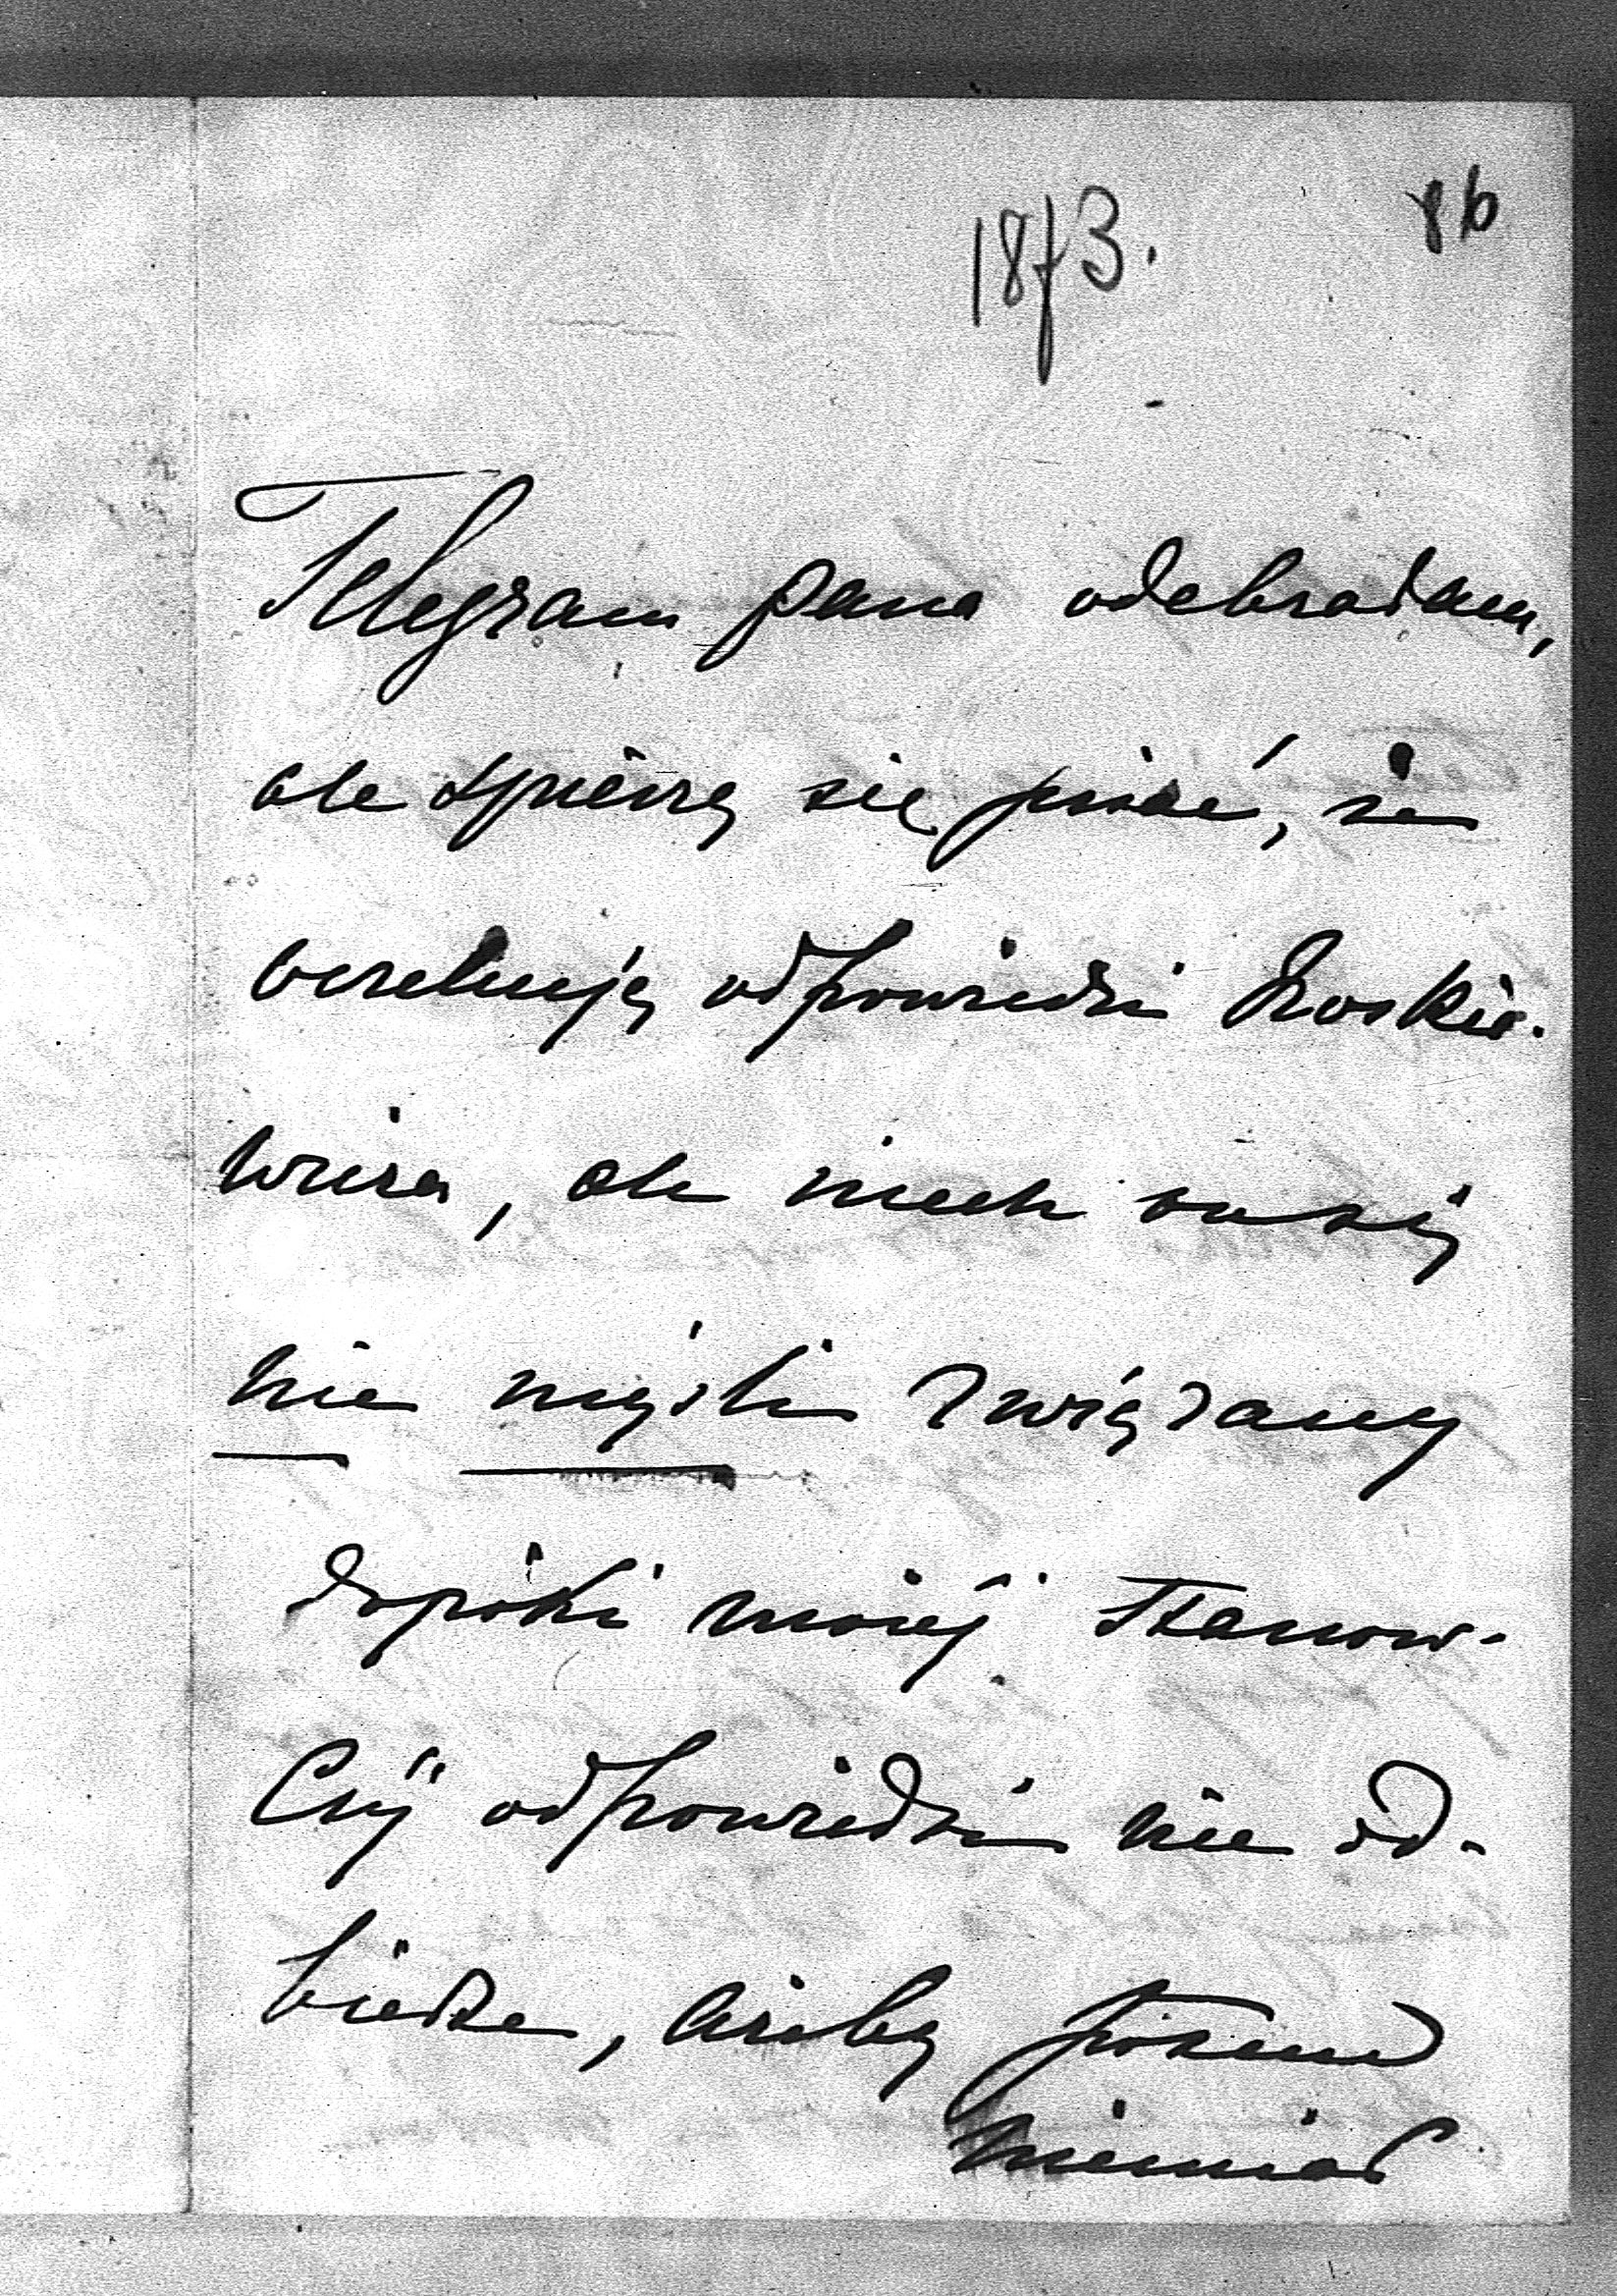 1873.
86
Telegram pana odebrałam,
ale spieszę się pisać, że
oczekuję odpowiedzi Kroskie-
wicza, ale niech
nie myśli związany
dopóki mojéj stanow-
czéj odpowiedzi nie od-
biedze, ażeby potem
niemiał